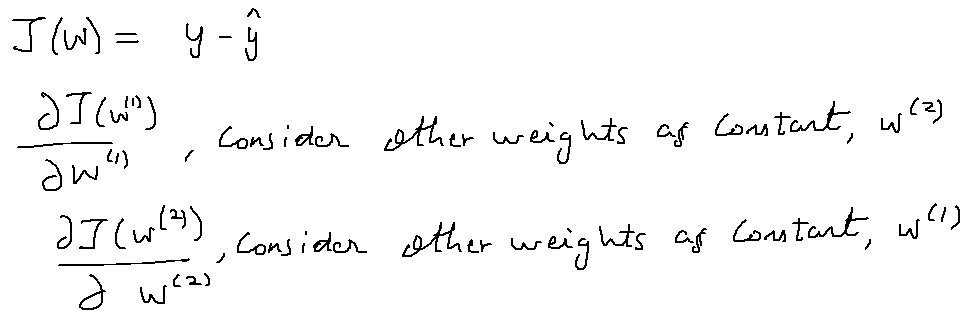 J(w) = y - ŷ
∂J(w⁽¹⁾)/∂w⁽¹⁾, Consider other weights as constant, w⁽²⁾
∂J(w⁽²⁾)/∂w⁽²⁾, Consider other weights as constant, w⁽¹⁾